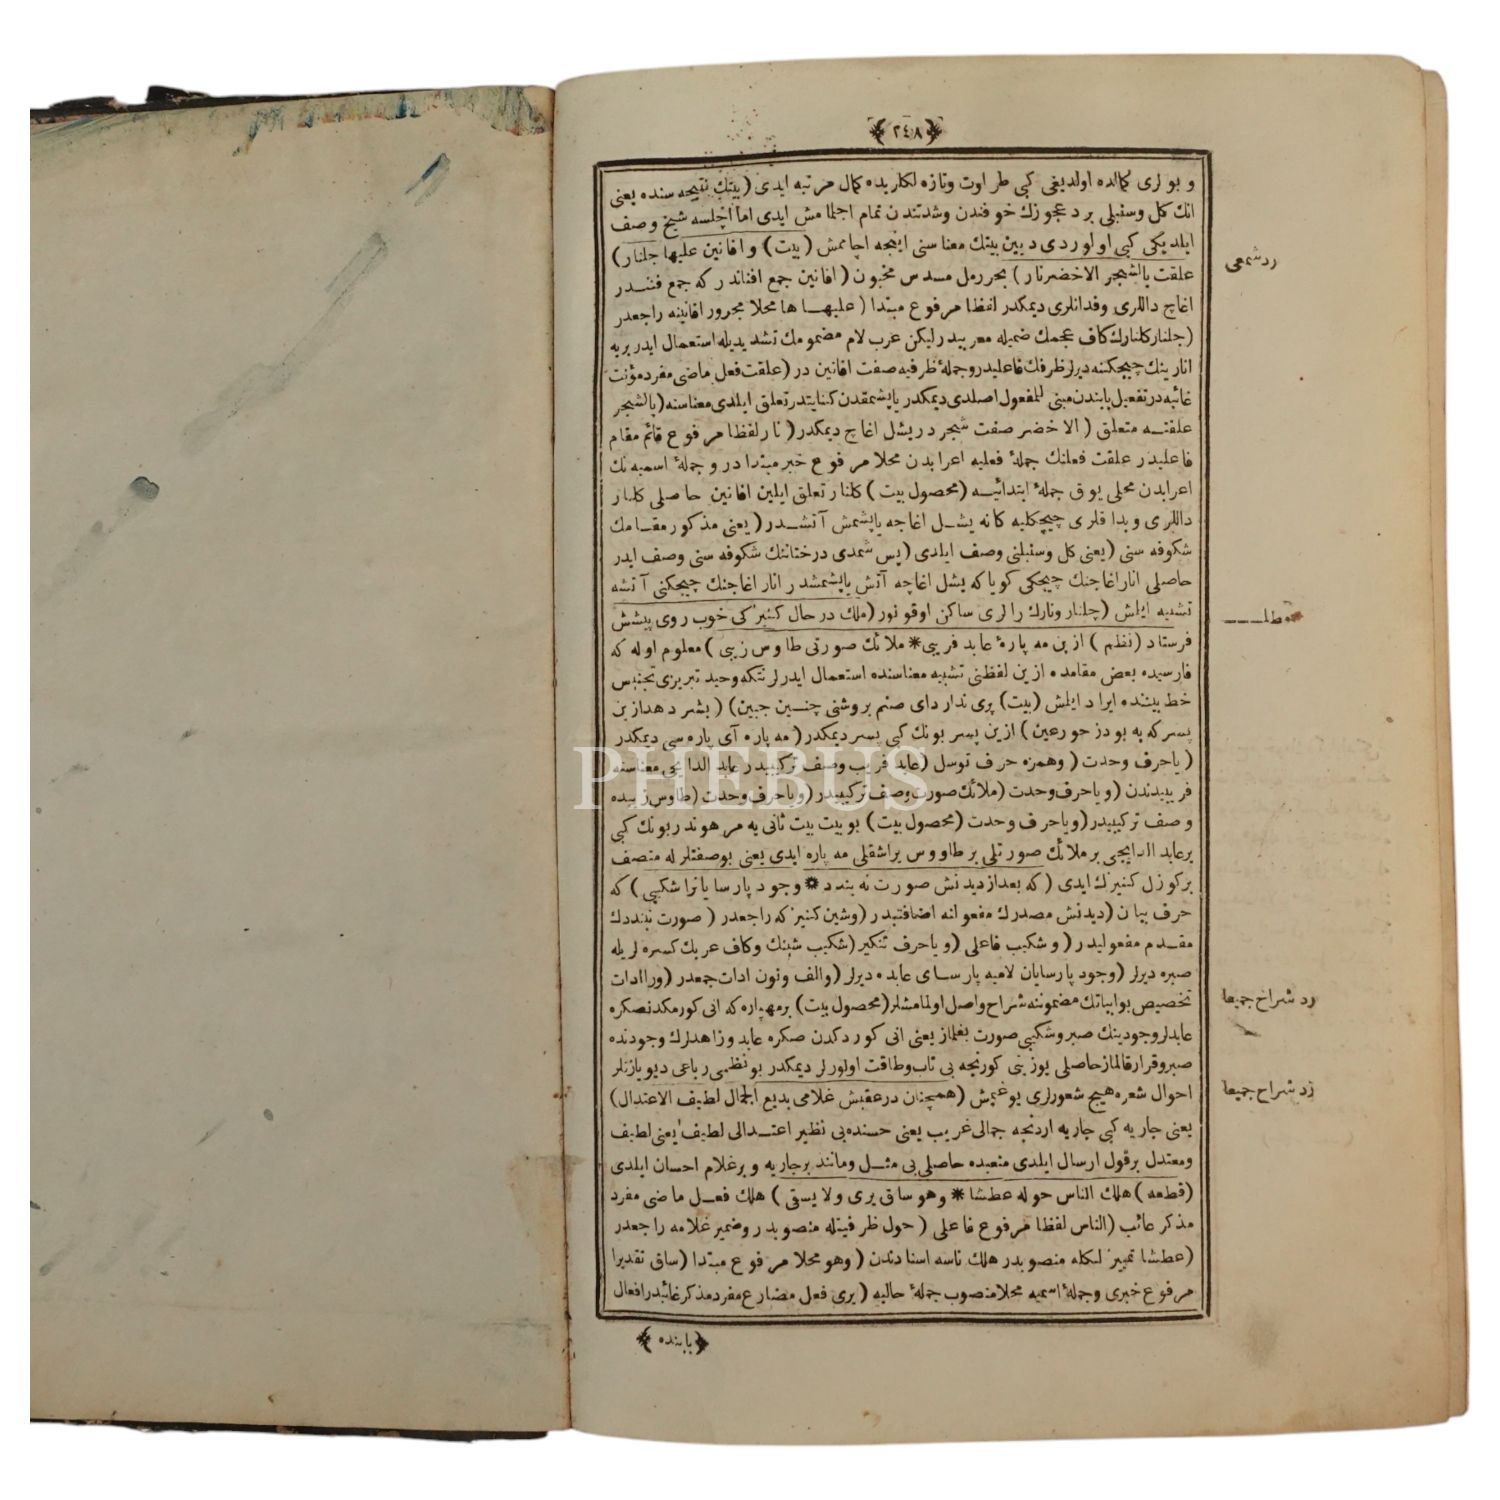 ٢٤٨
و بولری کمالده اولدیغی کبی طراوت وتازه لکلریده کمال مرتبه ایدی (بیتک نتیجه سنده یعنی
انک کل وسنبلی برد عجوزک خوفندن وشدتندن تمام اچلمامش ایدی اما اچلسه شیخ وصف
ایلدیکی کبی اولوردی دیین بیتک معناسنی اییجه اچامش (بیت) و افانین علیها جلنار)
علقت بالشجر الاخضر نار) بحر رمل مسدس مخبون (افانین جمع افناندر که جمع فنندر
اغاج داللری وفدانلری دیمکدر لفظا مرفوع مبتدا (علیها ها محلا مجرور افانینه راجعدر
(جلنار کلنارک کاف عجمک ضمیله معربیدر لیکن عرب لام مضمومک تشدیدیله استعمال ایدر بریه
انارینک چیچکنه دیرلر ظرفک فاعلیدر وجملۀ ظرفیه صفت افانین در (علقت فعل ماضی مفرد مؤنث
غائبه در تفعیل بابندن مبنی للمفعول اصلدی دیمکدر یاپشمقدن کنایتدر تعلق ایلدی معناسنه (بالشجر
علقته متعلق (الاخضر صفت شجر در یشل اغاج دیمکدر (نار لفظا مرفوع قائم مقام
فاعلیدر علقت فعلنک جملۀ فعلیه اعرابدن محلا مرفوع خبر مبتدا در و جملۀ اسمیه نک
اعرابدن محلی یوق جملۀ ابتدائیه (محصول بیت) کلنار تعلق ایلین افانین حاصلی کلنار
داللری و بداقلری چیچکلیه کانه یشل اغاجه یاپشمش آتشدر (یعنی مذکور مقامک
شکوفه سنی (یعنی کل وسنبلنی وصف ایلدی (پس شمدی درختانک شکوفه سنی وصف ایدر
حاصلی انار اغاجنک چیچکی کویا که یشل اغاجه آتش یاپشمشدر انار اغاجنک چیچکنی آتشه
تشبیه ایلمش (جلنار ونارک رالری ساکن اوقونور (ملک در حال کنیزکی خوب روی پیشش
فرستاد (نظم) ازین مه پارۀ عابد فریبی * ملائک صورتی طاوس زیبی) معلوم اوله که
فارسیده بعض مقامده ازین لفظنی تشبیه معناسنده استعمال ایدرلر نتکه وحید تبریزی تجنیس
خط بیتنده ایراد ایلمش (بیت) پری ندارد ای صنم بروشنی چنین جبین) (بشر دهد ازین
پسر که به بود ز حور عین) ازین پسر بونک کبی پسر دیمکدر (مه پاره آی پاره سی دیمکدر
(یا حرف وحدت (وهمزه حرف توسل (عابد فریب وصف ترکیبیدر عابد الدایجی معناسنه
فریبیدندن (و یا حرف وحدت (ملائک صورت وصف ترکیبیدر (و یا حرف وحدت (طاوس زیبده
وصف ترکیبیدر (و یا حرف وحدت (محصول بیت) بو بیت بیت ثانی یه مرهوندر بونک کبی
بر عابد الدایجی بر ملائک صورتلی بر طاووس یراشقلی مه پاره ایدی یعنی بو صفتلر له متصف
بر کوزل کنیزک ایدی (که بعد از دیدنش صورت نه بندد * وجود پارسایانرا شکیبی) که
حرف بیان (دیدنش مصدرک مفعولنه اضافتیدر (وشین کنیزکه راجعدر (صورت نبنددک
مقدم مفعولیدر (و شکیب فاعلی (و یا حرف تنکیر (شکیب شینک وکاف عربک کسره لریله
صبره دیرلر (وجود پارسایان لامیه پارسای عابده دیرلر (والف ونون ادات جمعدر (ورا ادات
تخصیص بو ابیاتک مضموننه شراح واصل اولمامشلر (محصول بیت) بر مهپاره که انی کورمکدنصکره
عابدلر وجودینک صبر وشکیبی صورت بغلماز یعنی انی کوردکدن صکره عابد وزاهدلرک وجودنده
صبر وقرار قالماز حاصلی یوزینی کورنجه بی تاب وطاقت اولورلر دیمکدر بو نظمی رباعی دیو یازنلر
احوال شعره هیچ شعورلری یوغیمش (همچنان در عقبش غلامی بدیع الجمال لطیف الاعتدال)
یعنی جاریه کبی جاریه اردنجه جمالی غریب یعنی حسنده بی نظیر اعتدالی لطیف یعنی لطیف
ومعتدل بر قول ارسال ایلدی متعبده حاصلی بی مثل ومانند بر جاریه و بر غلام احسان ایلدی
(قطعه) هلک الناس حوله عطشا * وهو ساق یری ولا یسقی) هلک فعل ماضی مفرد
مذکر غائب (الناس لفظا مرفوع فاعلی (حول ظرفیتله منصوبدر وضمیر غلامه راجعدر
(عطشا تمییز لکله منصوبدر هلک ناسه اسنادندن (وهو محلا مرفوع مبتدا (ساق تقدیرا
مرفوع خبری وجملۀ اسمیه محلا منصوب جملۀ حالیه (یری فعل مضارع مفرد مذکر غائبدر افعال
بابنده
رد شمعی
رد شراح جمیعا
رد شراح جمیعا
PHEBUS